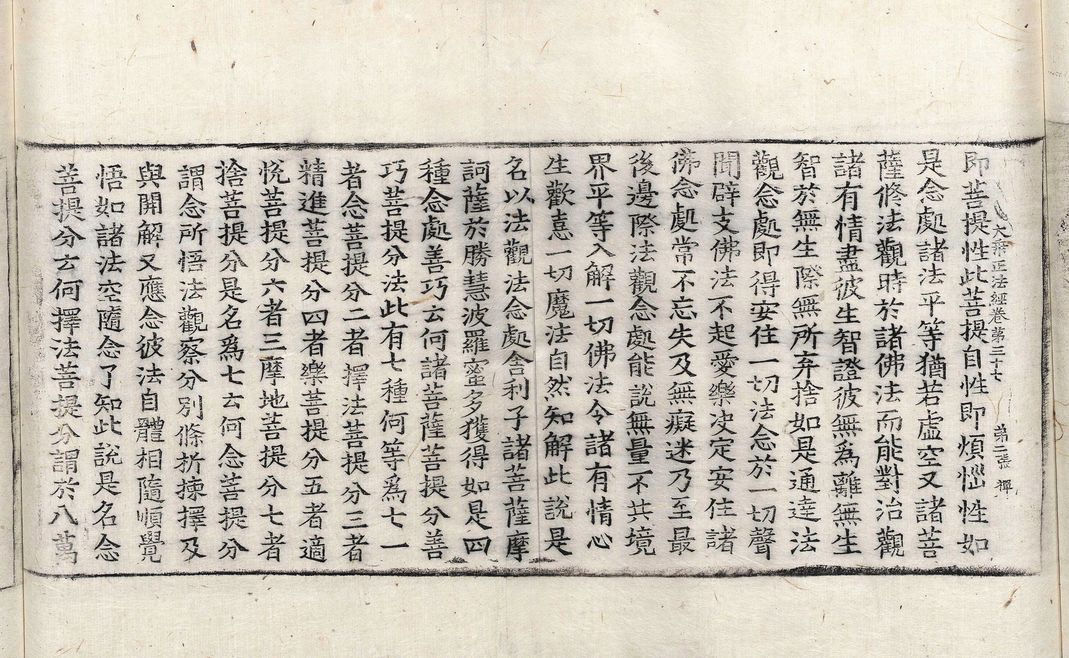 大乘正法經卷第三十七 第二張
即菩提性此菩提自性即煩惱性如
是念處諸法平等猶若虛空又諸菩
薩修法觀時於諸佛法而能對治觀
諸有情盡彼生智證彼無爲離無生
智於無生際無所弃捨如是通達法
觀念處即得安住一切法念於一切聲
聞辟支佛法不起愛樂决定安住諸
佛念處常不忘失及無癡迷乃至最
後邊際法觀念處能說無量不共境
界平等入解一切佛法令諸有情心
生歡憙一切魔法自然知解此說是
名以法觀法念處舍利子諸菩薩摩
訶薩於勝慧波羅蜜多獲得如是四
種念處善巧云何諸菩薩菩提分善
巧菩提分法此有七種何等爲七一
者念菩提分二者擇法菩提分三者
精進菩提分四者樂菩提分五者適
悅菩提分六者三摩地菩提分七者
捨菩提分是名爲七云何念菩提分
謂念所悟法觀察分別條析揀擇及
與開解又應念彼法自體相隨順覺
悟如諸法空隨念了知此說是名念
菩提分云何擇法菩提分謂於八萬